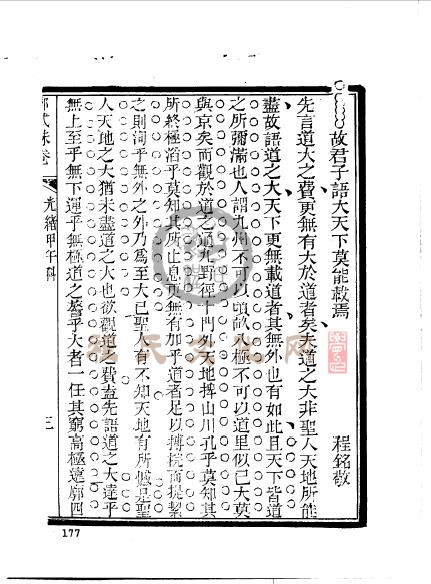 故君子語大天下莫能載焉 程銘敬
先言道大之費更無有大於道者矣夫道之大非聖人天地所能
盡故語道之大天下更無載道者其無外也有如此且天下皆道
之所彌滿也人謂九州不可以頃畝八極不可以道里似已大莫
與京矣而觀於道之通九野徑十門外天地捭山川孔乎莫知其
所終極滔乎莫知其所止息更無有加乎道者足以摶捖而提挈
之則洵乎無外之外乃為至大已聖人有不知天地有所憾是聖
人天地之大猶未盡道之大也欲觀道之費盍先語道之大達乎
無上至乎無下運乎無極道之乎大者一任其窮高極遠廓四
鄉試硃卷 光緒甲午科 三
177
程氏文化网